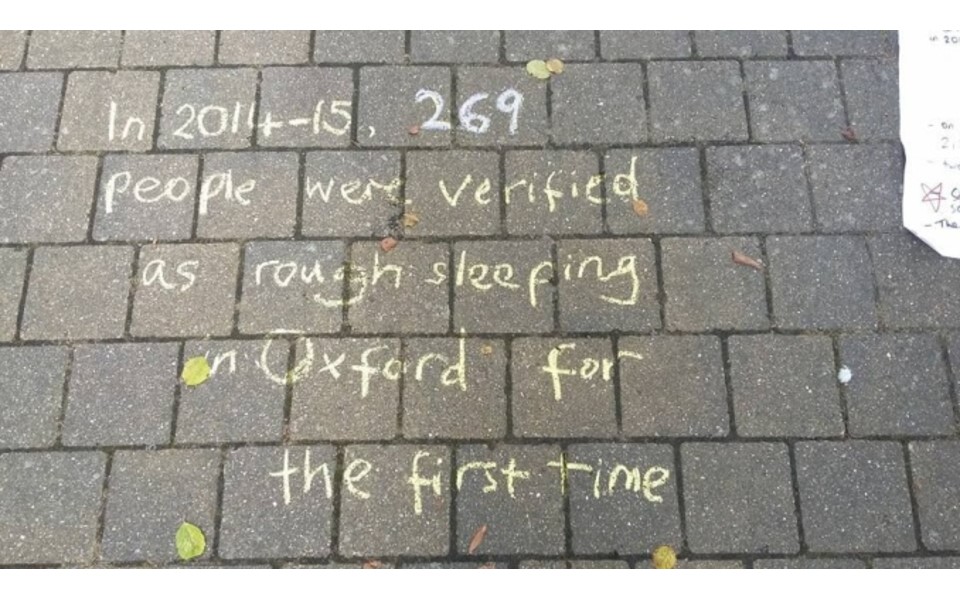 In 2014-15, 269
people were verified
as rough sleeping
in Oxford for
the first time